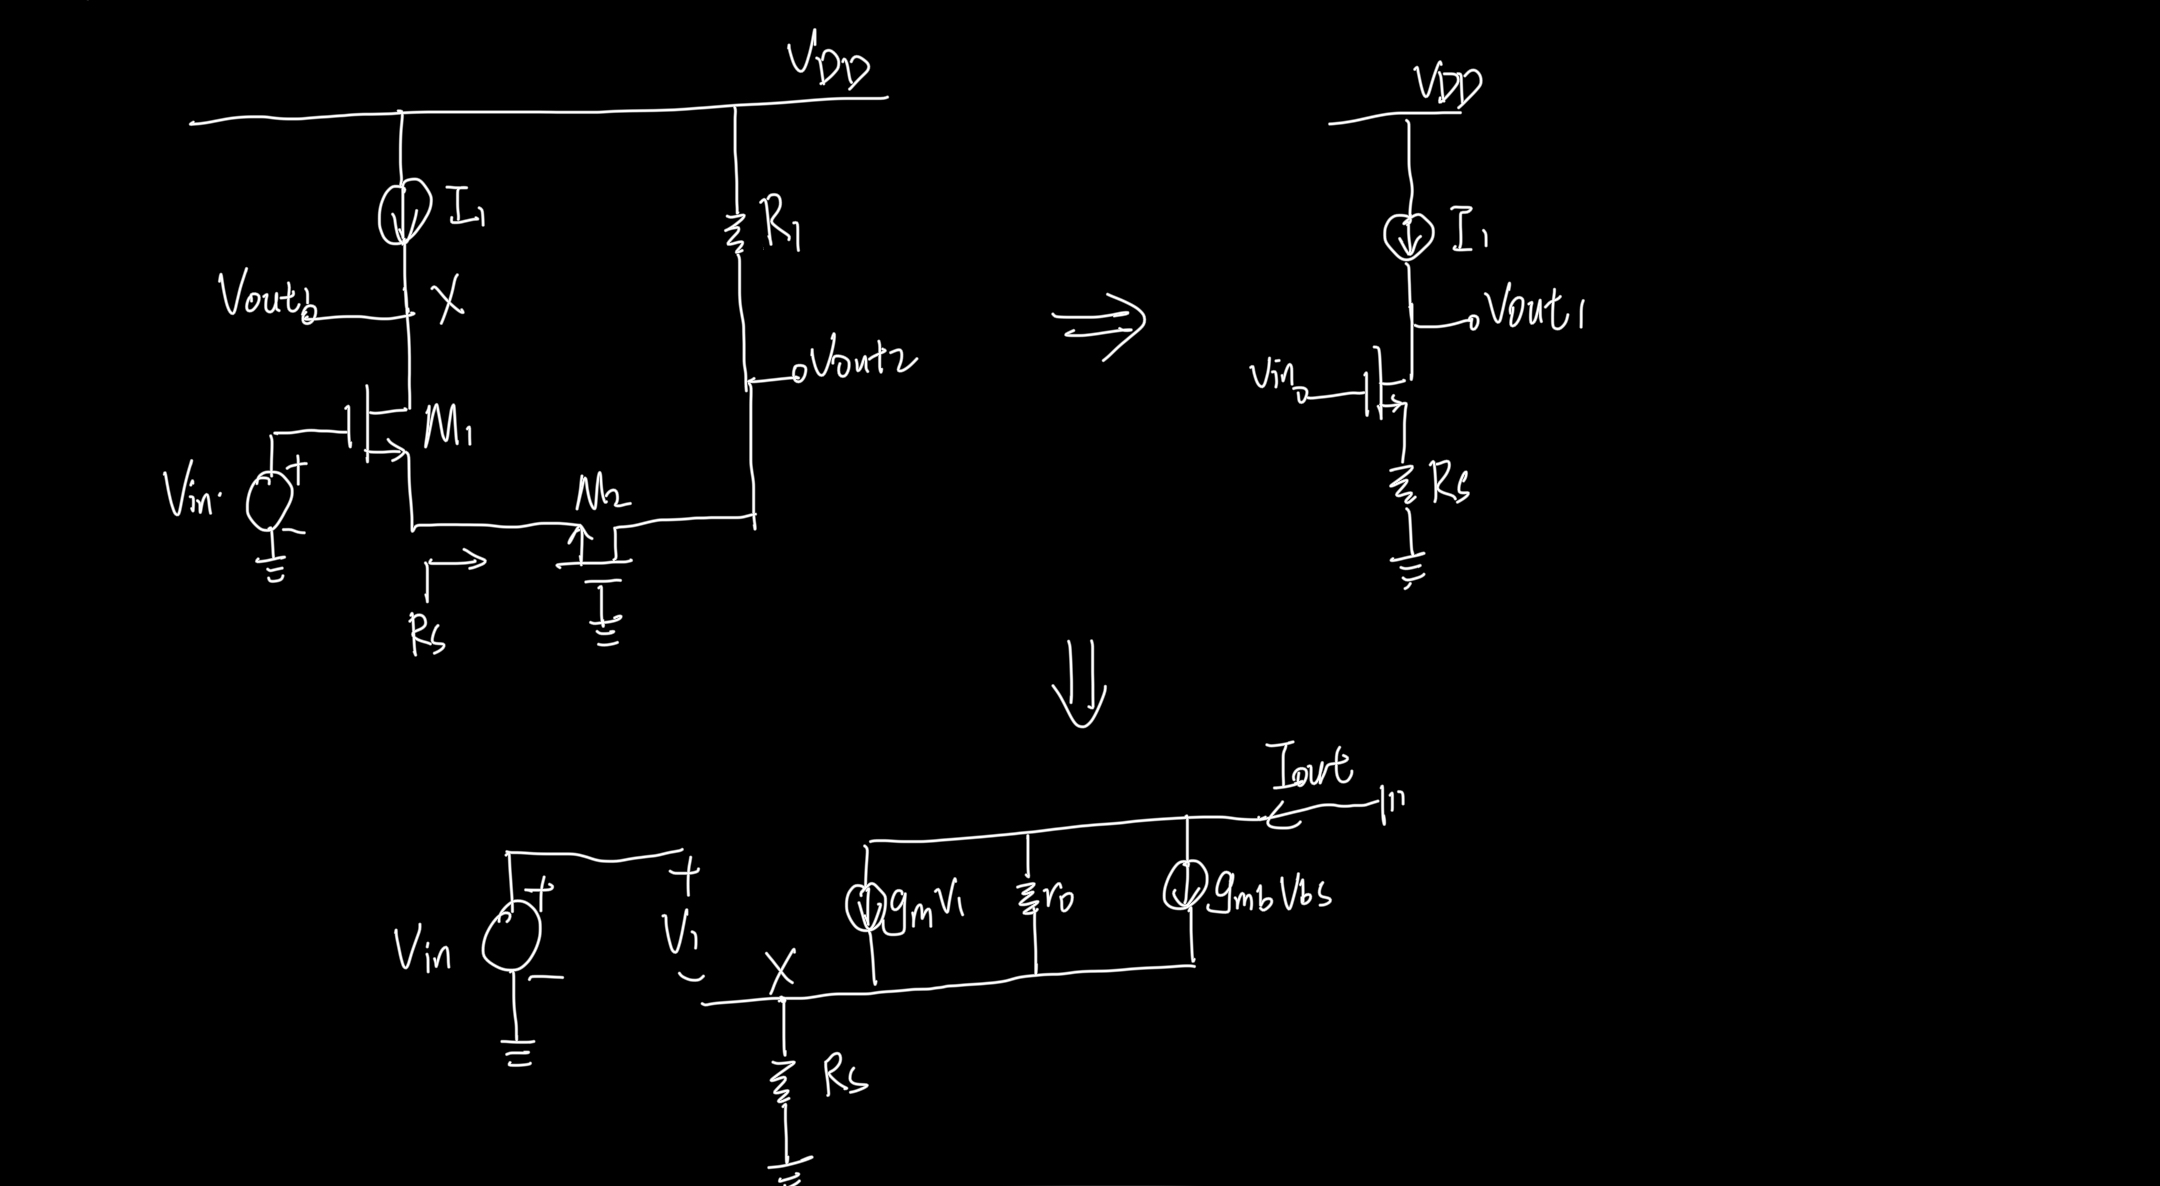 VDD
I1
R1
Vout1
X
Vout2
M1
Vin
+
−
M2
Rs
⇒
VDD
I1
Vout1
Vin
Rs
⇓
Iout
Vin
+
−
+
V1
−
X
gmV1
ro
gmbVbs
Rs